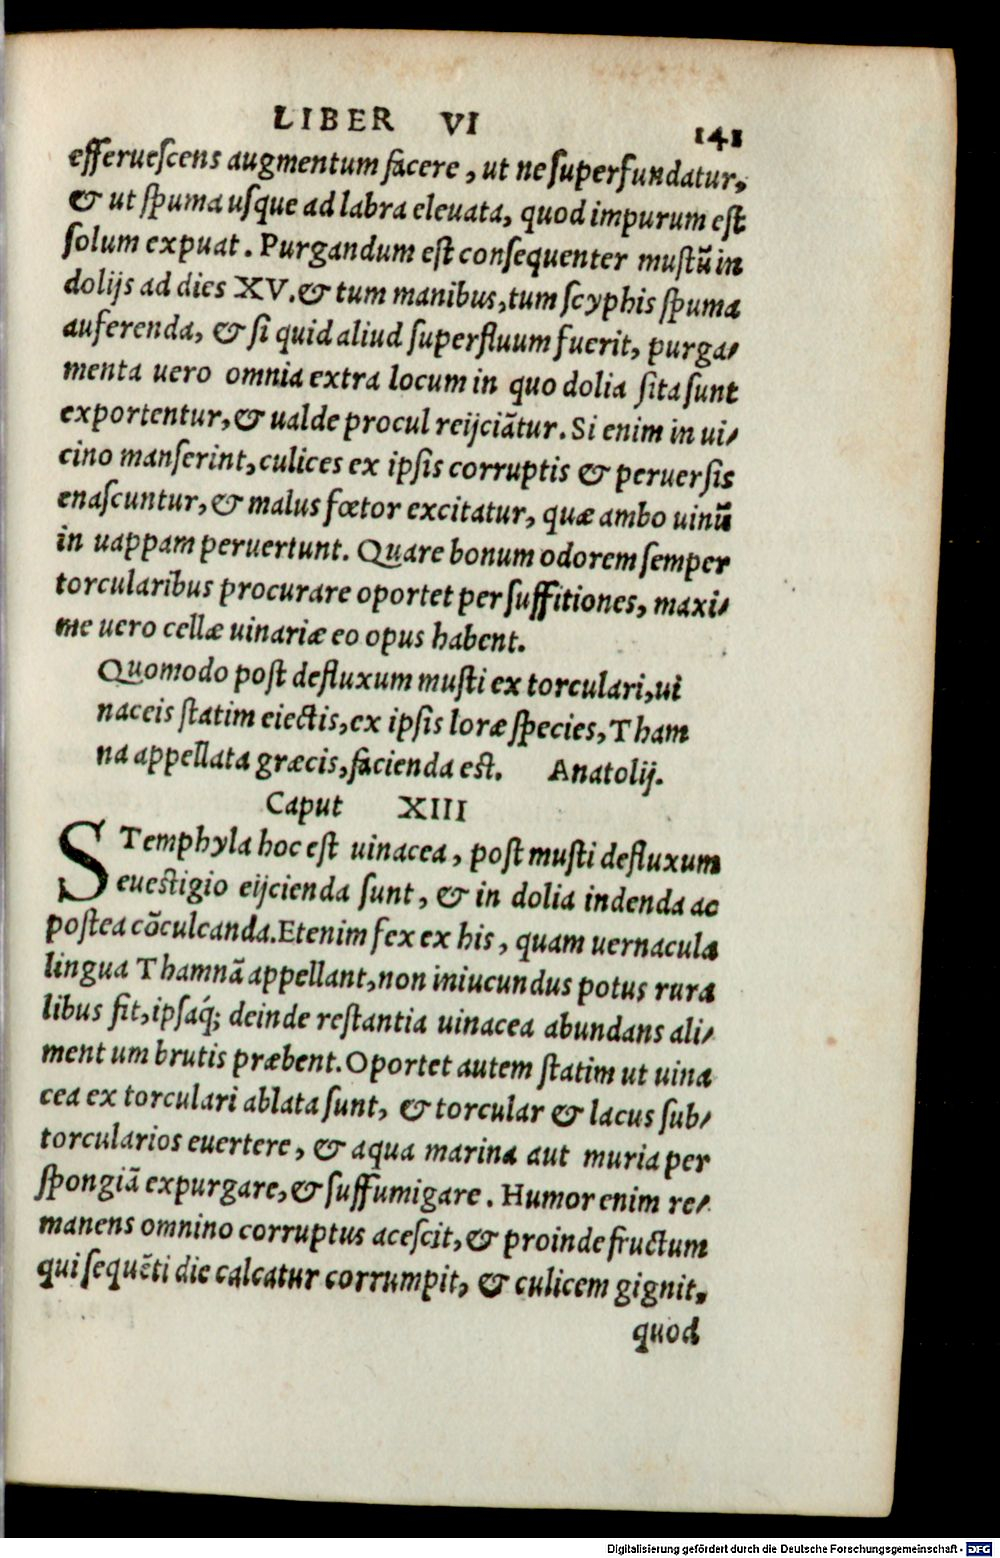 LIBER VI 141
efferuescens augmentum facere, ut ne superfundatur,
& ut spuma usque ad labra eleuata, quod impurum est
solum expuat. Purgandum est consequenter mustū in
dolijs ad dies XV. & tum manibus, tum scyphis spuma
auferenda, & si quid aliud superfluum fuerit, purga-
menta uero omnia extra locum in quo dolia sita sunt
exportentur, & ualde procul reijciātur. Si enim in ui-
cino manserint, culices ex ipsis corruptis & peruersis
enascuntur, & malus fœtor excitatur, quæ ambo uinū
in uappam peruertunt. Quare bonum odorem semper
torcularibus procurare oportet per suffitiones, maxi-
me uero cellæ uinariæ eo opus habent.
Quomodo post defluxum musti ex torculari, ui
naceis statim eiectis, ex ipsis loræ species, Tham
na appellata græcis, facienda est. Anatolij.
Caput XIII
STemphyla hoc est uinacea, post musti defluxum
euestigio eijcienda sunt, & in dolia indenda ac
postea cōculcanda. Etenim fex ex his, quam uernacula
lingua Thamnā appellant, non iniucundus potus rura
libus fit, ipsaq́; deinde restantia uinacea abundans ali-
mentum brutis præbent. Oportet autem statim ut uina
cea ex torculari ablata sunt, & torcular & lacus sub-
torcularios euertere, & aqua marina aut muria per
spongiā expurgare, & suffumigare. Humor enim re-
manens omnino corruptus acescit, & proinde fructum
qui sequēti die calcatur corrumpit, & culicem gignit,
quod
Digitalisierung gefördert durch die Deutsche Forschungsgemeinschaft - DFG